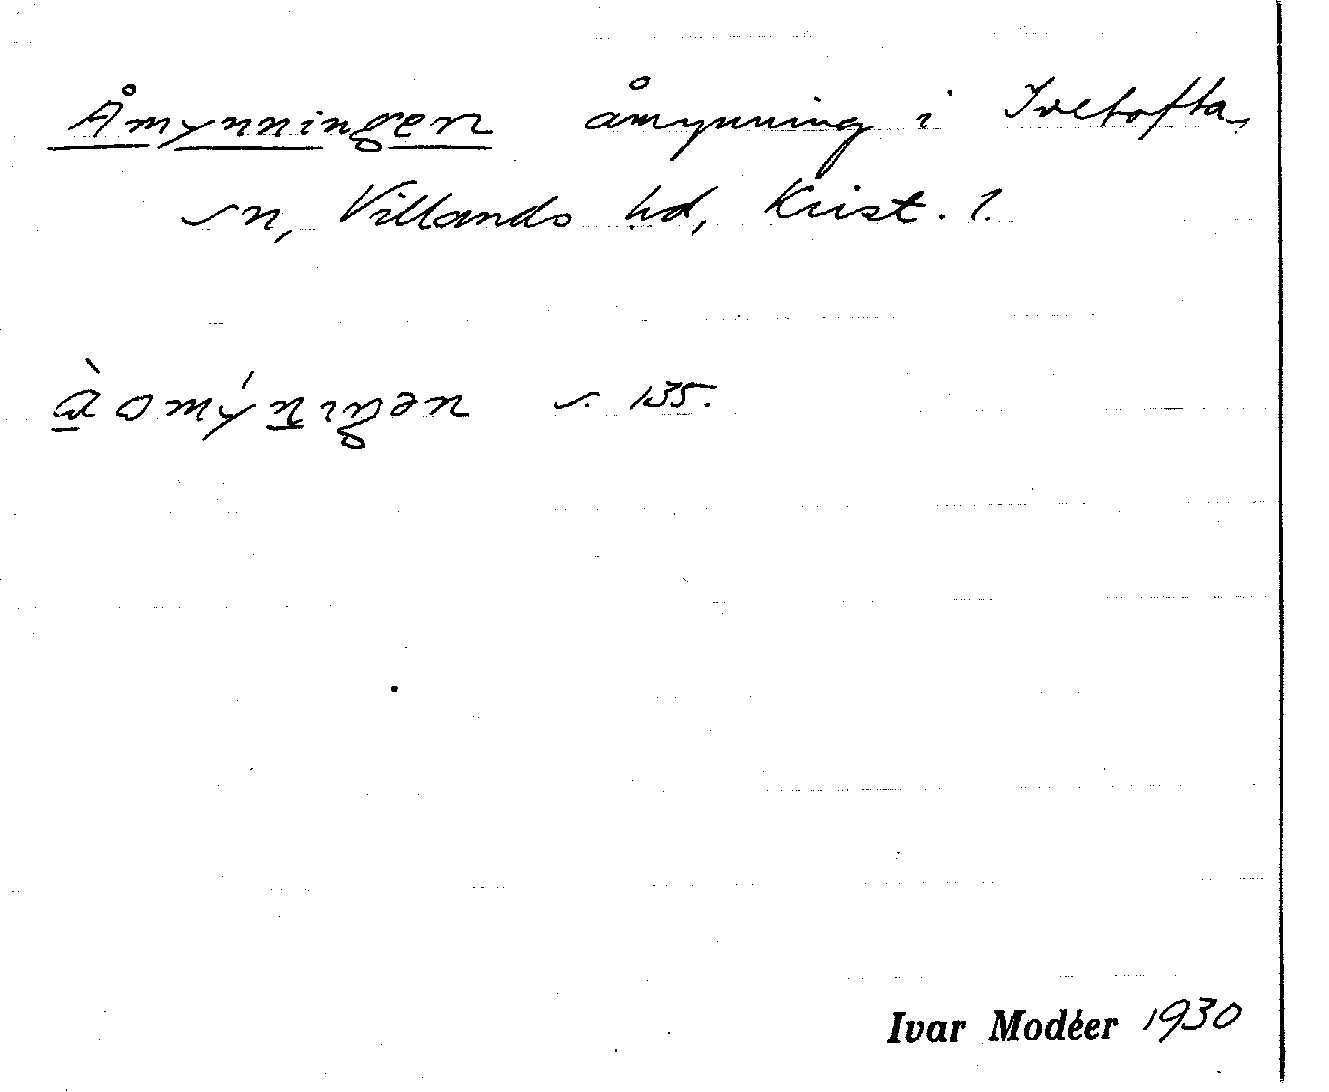 Åmynningen åmynning i Ivetofta
sn, Villands hd, Krist. l.
s. 135.
Ivar Modéer 1930